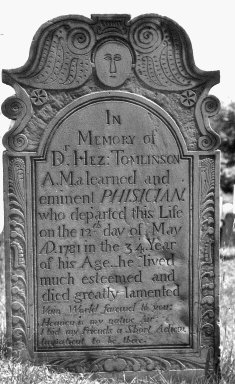 IN
MEMORY of
Dr. HEZ: TOMLINSON
A. M a learned and
eminent PHISICIAN.
who departed this Life
on the 12th day of May
AD. 1781 in the 34 Year
of his Age. he lived
much esteemed and
died greatly lamented.
Vain World farewel to you
Heaven is my native air
I bid my friends a Short Adieu
Impatient to be there